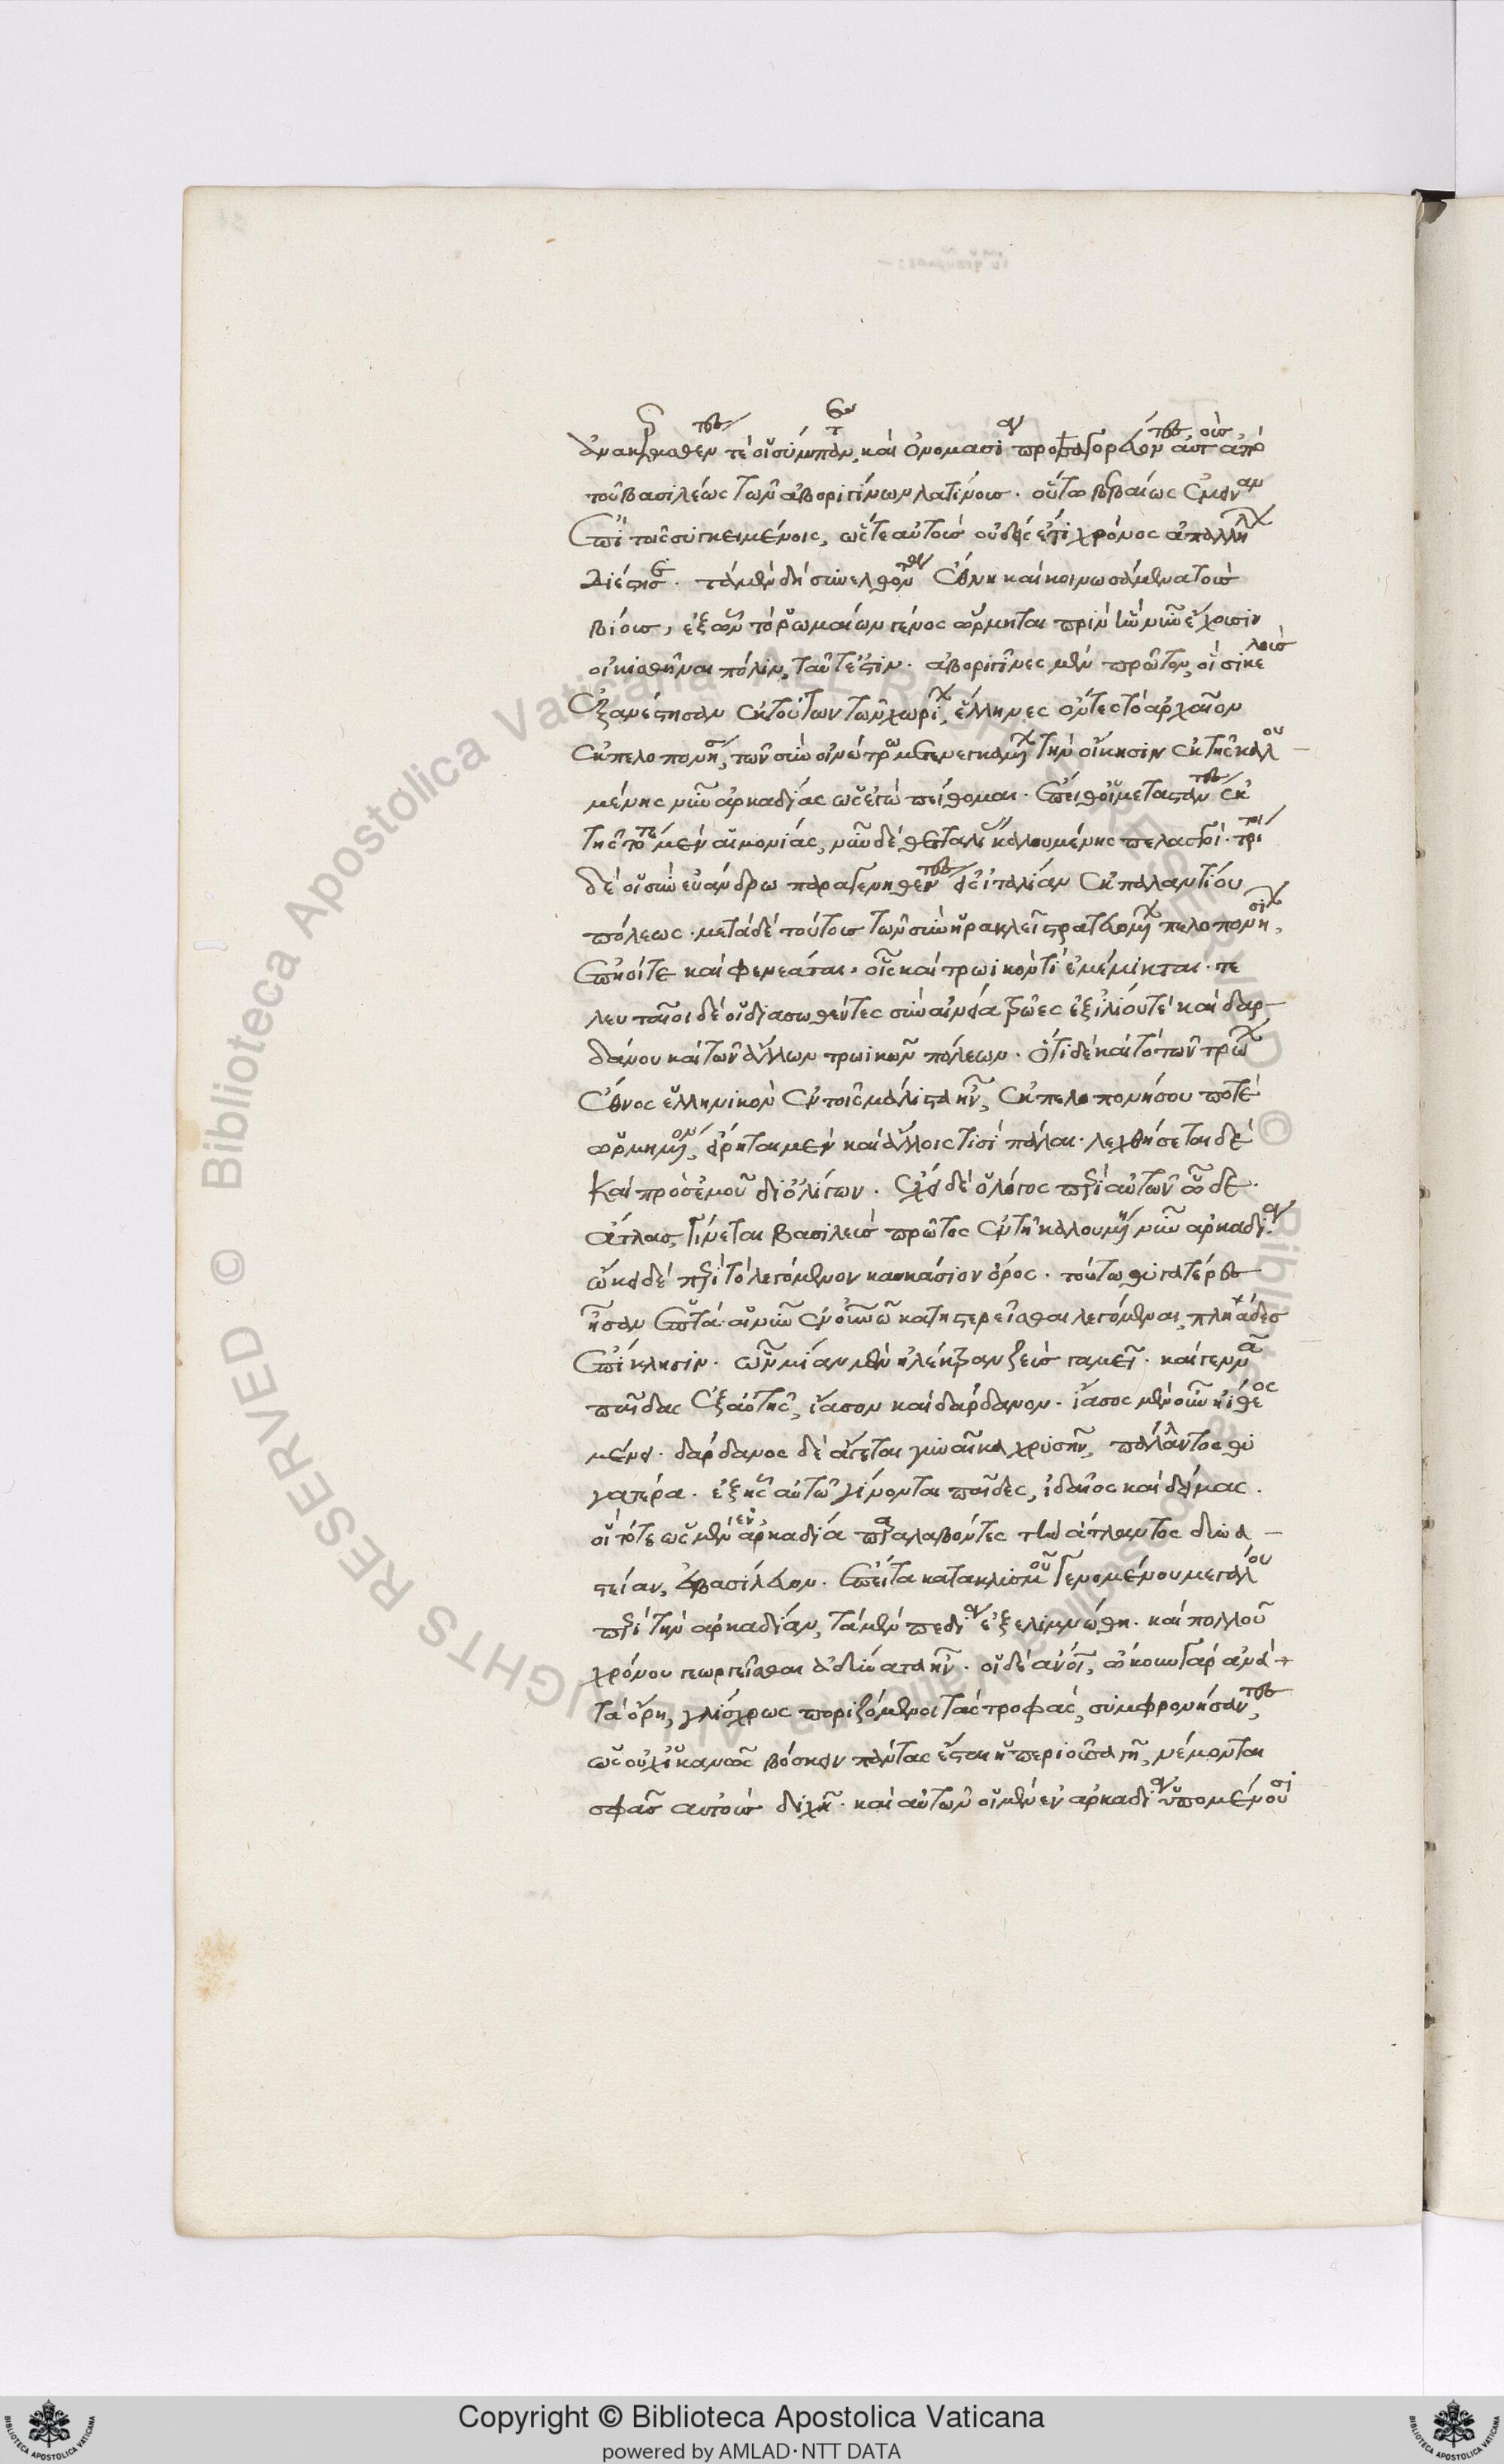 ἀνακερασθέντες τε οἱ σύμπαντες, καὶ ὀνόμασιν προσαγορεύοντες αὑτοὺς ἀπὸ
τοῦ βασιλέως τῶν ἀβοριγίνων λατίνους. οὕτω βεβαίως ἔμειναν
ἐπὶ τοῖς συγκειμένοις, ὥστε αὐτοὺς οὐδεὶς ἔτι χρόνος ἀπ᾽ ἀλλήλων
διέστησε. τὰ μὲν δὴ συνελθόντα ἔθνη καὶ κοινωσάμενα τοὺς
βίους, ἐξ ὧν τὸ ῥωμαίων γένος ὥρμηται πρὶν ἣν νῦν ἔχουσιν
οἰκισθῆναι πόλιν, ταῦτ᾽ ἐστίν. ἀβοριγῖνες μὲν πρῶτον, οἳ σικελοὺς
ἐξανέστησαν ἐκ τούτων τῶν χωρίων, ἕλληνες ὄντες τὸ ἀρχαῖον
ἐκ πελοποννήσου, τῶν σὺν οἰνώτρῳ μετενεγκαμένων τὴν οἴκησιν ἐκ τῆς καλου
μένης νῦν ἀρκαδίας ὡς ἐγὼ πείθομαι. ἔπειθ᾽ οἱ μεταστάντες ἐκ
τῆς τότε μὲν αἱμονίας, νῦν δὲ θετταλίας καλουμένης πελασγοί. τρίτοι
δὲ οἱ σὺν εὐάνδρω παραγενηθέντες εἰς ἰταλίαν ἐκ παλαντίου
πόλεως. μετὰ δὲ τούτους τῶν σὺν ἡρακλεῖ στρατευομένων πελοποννησίων,
ἐπειοί τε καὶ φενεᾶται. οἷς καὶ τρωικόν τι ἐμέμικται. τε
λευταῖοι δὲ οἱ διασωθέντες σὺν αἰνεία τρῶες ἐξ ἰλίου τὲ καὶ δαρ-
δάνου καὶ τῶν ἄλλων τρωικῶν πόλεων. ὅτι δὲ καὶ τὸ τῶν τρώων
ἔθνος ἑλληνικὸν ἐν τοῖς μάλιστα ἦν, ἐκ πελοποννήσου ποτὲ
ὡρμημένον, εἴρηται μὲν καὶ ἄλλοις τισὶ πάλαι. λεχθήσεται δὲ
καὶ πρὸς ἐμοῦ δι᾽ ὀλίγων. ἔχει δὲ ὁ λόγος περὶ αὐτῶν ὧδε.
ἄτλας γίνεται βασιλεὺς πρῶτος ἐν τῇ καλουμένῃ νῦν ἀρκαδία.
ᾤκει δὲ περὶ τὸ λεγόμενον καυκάσιον ὄρος. τούτω θυγατέρες
ἦσαν ἑπτὰ αἱ νῦν ἐν οὐρανῶ κατηστερεῖσθαι λεγόμεναι, πληάδες
ἐπίκλησιν. ὧν μίαν μὲν ἠλέκτραν ζεὺς γαμεῖ. καὶ γεννᾶ
παῖδας ἐξ αὐτῆς, ἴασον καὶ δάρδανον. ἴασος μὲν οὖν ἠίθεος
μένει. δάρδανος δὲ ἄγεται γυναῖκα χρύσην, πάλλαντος θυ
γατέρα. ἐξ ἧς αὐτῶ γίνονται παῖδες, ἰδαῖος καὶ δείμας.
οἳ τότε ὡς μὲν ἐν ἀρκαδία παραλαβόντες τὴν ἄτλαντος δυνα-
στείαν, ἐβασίλευον. ἔπειτα κατακλισμοῦ γενομένου μεγάλου
περὶ τὴν ἀρκαδίαν, τὰ μὲν πεδία ἐξελιμνώθη. καὶ πολλοῦ
χρόνου γεωργεῖσθαι ἀδύνατα ἦν. οἱ δὲ ἄνθρωποι, ὤκουν γὰρ ἀνὰ
τὰ ὄρη, γλίσχρως ποριζόμενοι τὰς τροφάς, συμφρονήσαντες,
ὡς οὐχ ἱκανὸς βόσκειν πάντας ἔσται ἡ περιοῦσα γῆ, νέμονται
σφᾶς αὐτοὺς διχῆ. καὶ αὐτῶν οἱ μὲν ἐν ἀρκαδία ὑπομένουσι
Copyright © Biblioteca Apostolica Vaticana
powered by AMLAD·NTT DATA